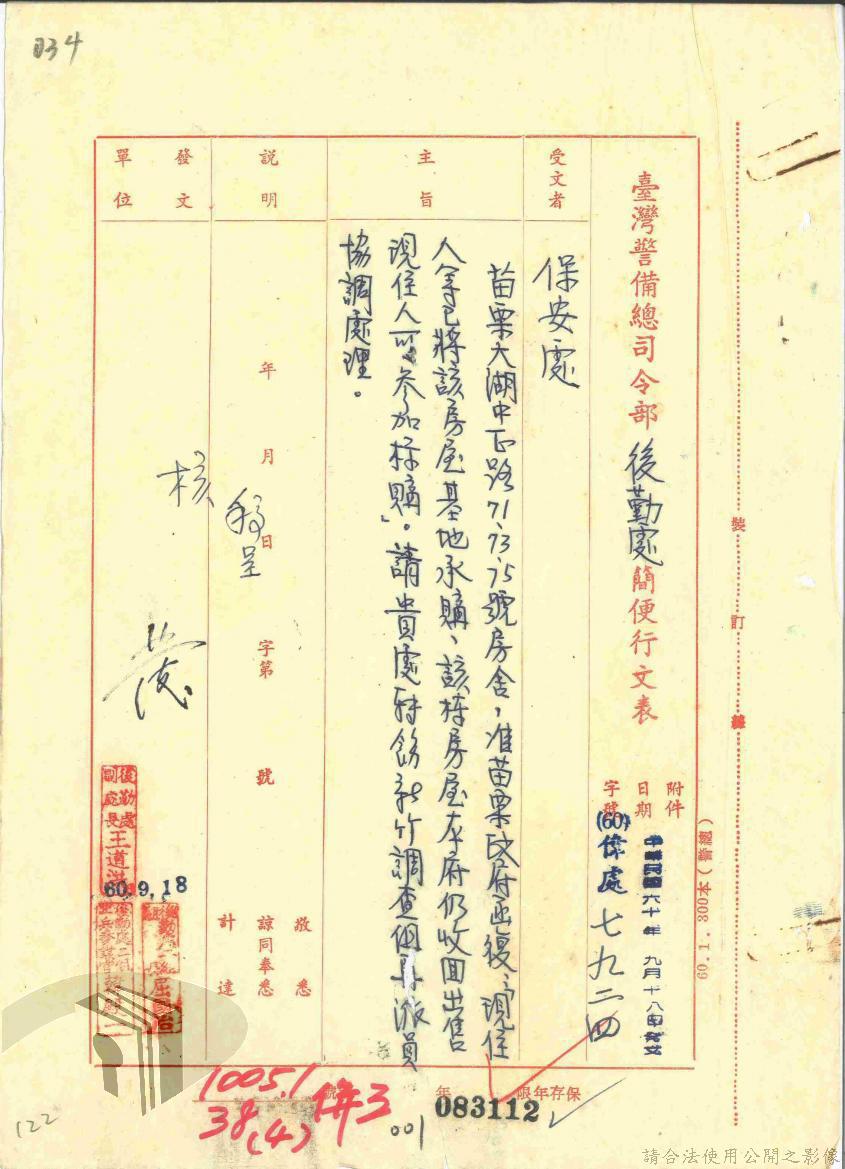 034
臺灣警備總司令部後勤處簡便行文表
附件
日期 中華民國六十年九月十八日發文
字號 (60)偉處七九二四
受文者
保安處
主旨
苗栗大湖中正路71、73、75號房舍，准苗栗政府函復「現住
人等已將該房屋基地承購、該棟房屋本府仍收回出售
現住人可參加標購」。請貴處轉飭新竹調查組再派員
協調處理。
說明
年 月 日 字第 號
敬悉
諒同奉悉
計達
稿呈
核
發文
單位
後勤處
副處長王道洪
60.9.18
保存年限 年
號
083112
1005.1
38(4)
併3
001
122
裝
訂
線
60.1.300本(警總)
請合法使用公開之影像